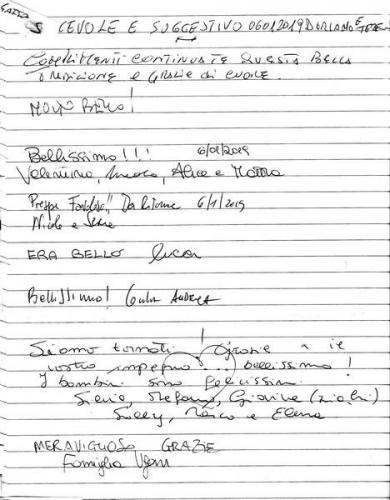 CEVOLE E SUGGESTIVO 06012019 DORIANO E
COMPLIMENTI CONTINUATE QUESTA BELLA
TRADIZIONE E GRAZIE di CUORE.
MOLTO BELLO!
Bellissimo!!! 6/01/2019
Valentino, Alice e
Presepe 6/1/2019
Nicole e
ERA BELLO Luca
Bellissimo! Giulia ANDREA
Siamo tornati! Grazie x il
vostro impegno... bellissimo!
I bambini sono felicissimi
Silvia, Stefano, (zio)
e Elena
MERAVIGLIOSO GRAZIE
Famiglia